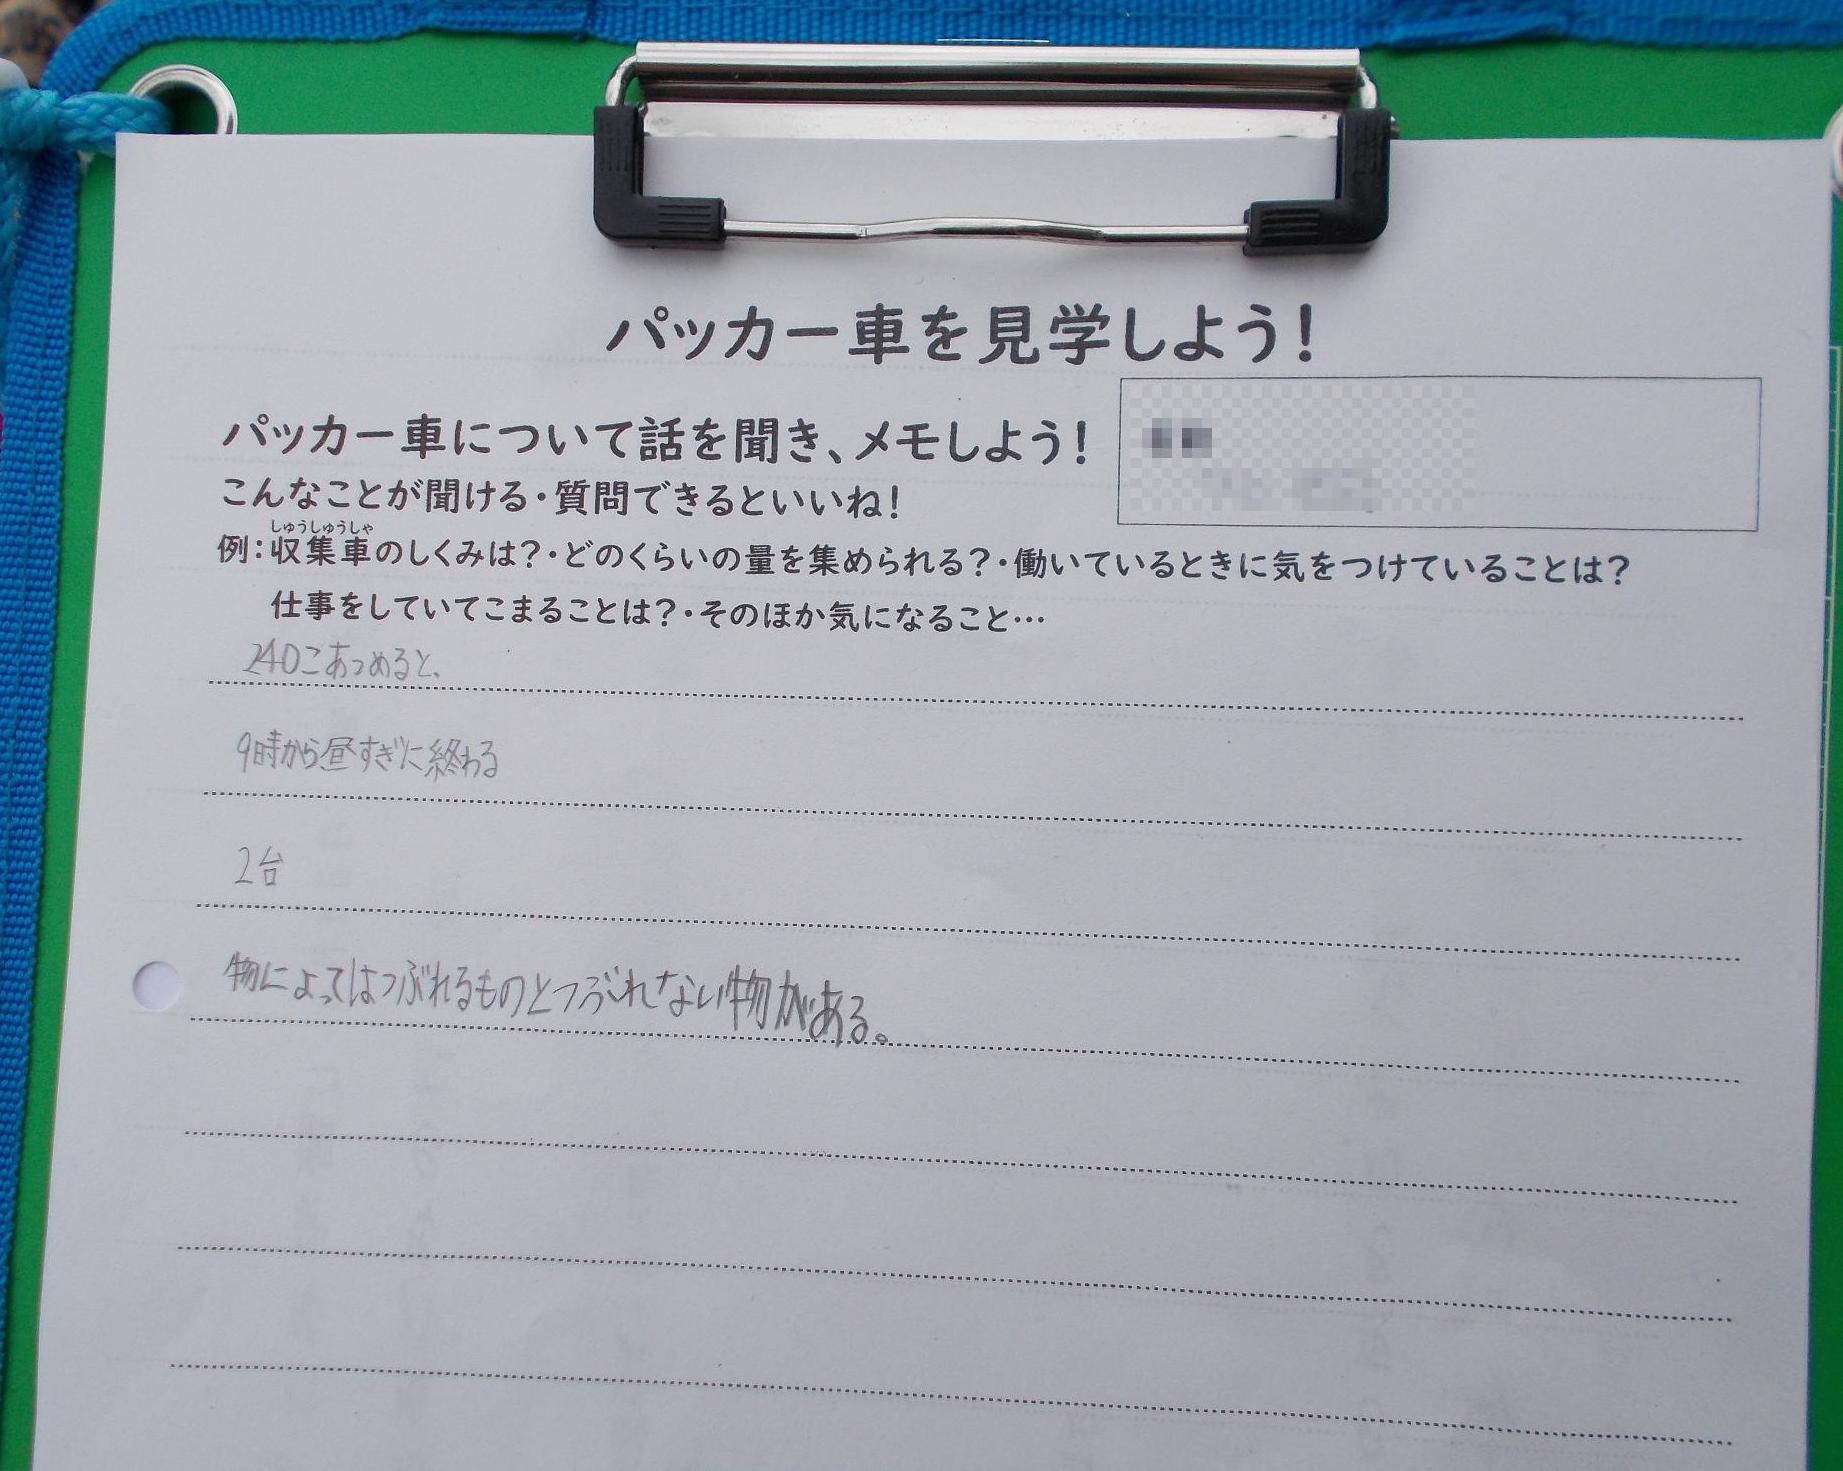 パッカー車を見学しよう!
パッカー車について話を聞き、メモしよう!
こんなことが聞ける・質問できるといいね!
しゅうしゅうしゃ
例:収集車のしくみは?・どのくらいの量を集められる?・働いているときに気をつけていることは?
仕事をしていてこまることは?・そのほか気になること…
240こあつめると、
9時から昼すぎに終わる
2台
物によってはつぶれるものとつぶれない物がある。